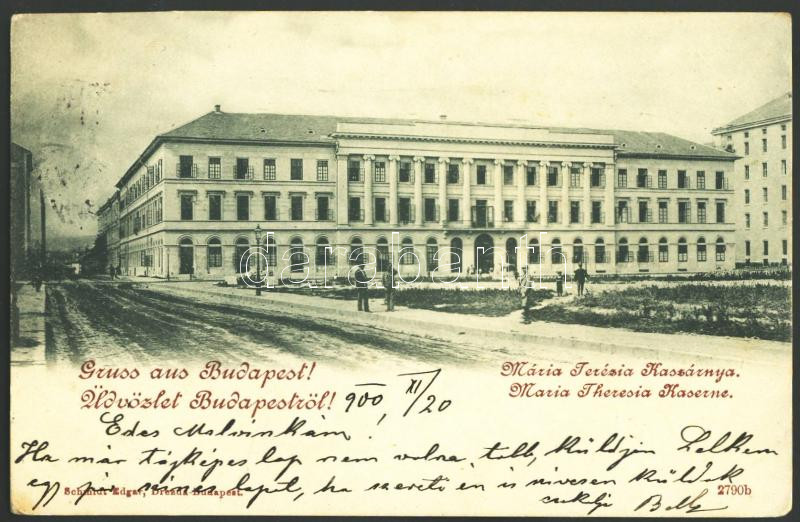 darabanth.com
Gruss aus Budapest!
Üdvözlet Budapestről!
900 XI/20
Mária Terézia Kaszárnya.
Maria Theresia Kaserne.
Edes Malvinkám!
Ha már tájképes lap nem volna több, küldjön Lelkem
egy pár szines lapot, ha szereti én is szivesen küldök
Schmidt Edgar, Drezda-Budapest.
2790b